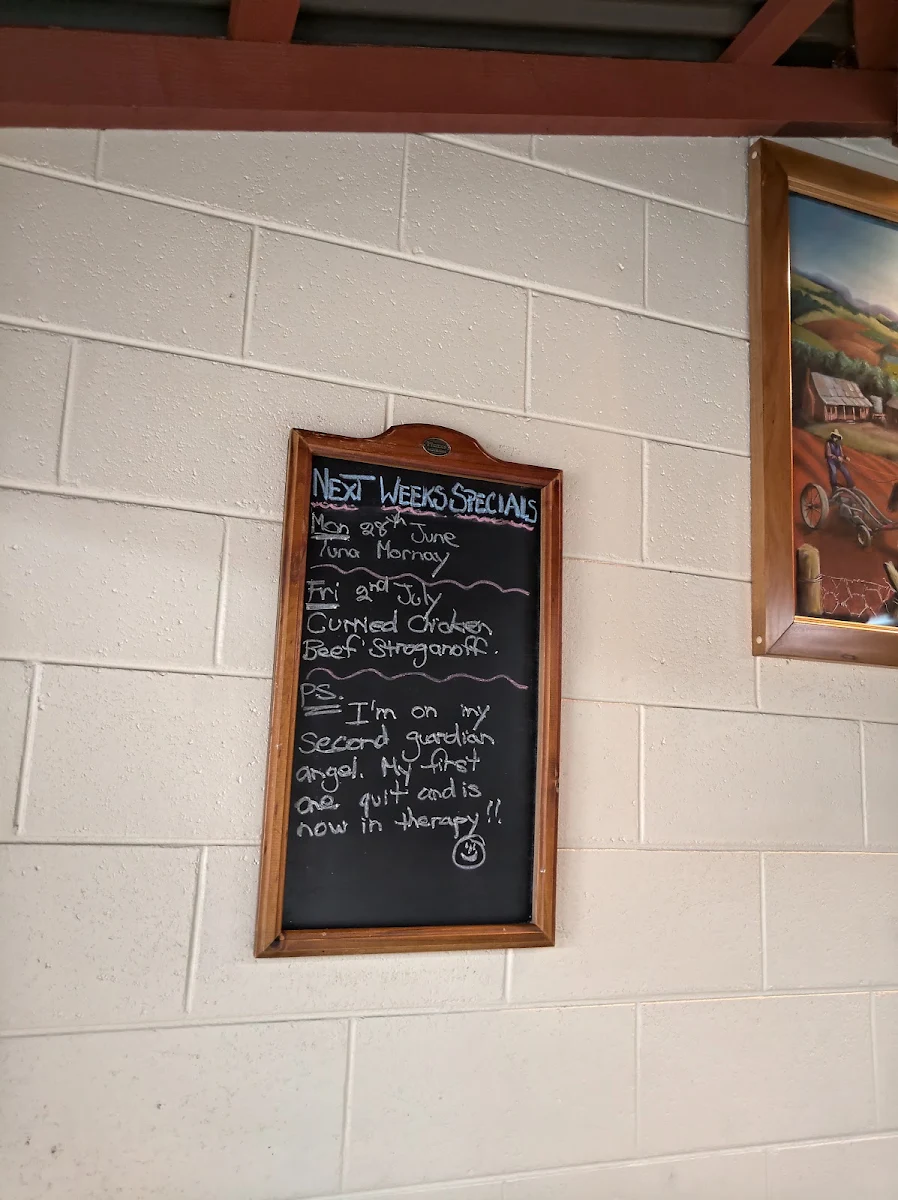 NEXT WEEKS SPECIALS
Mon 28th June
Tuna Mornay
Fri 2nd July
Curried Chicken
Beef Stroganoff.
PS.
I'm on my
second guardian
angel. My first
one quit and is
now in therapy!!